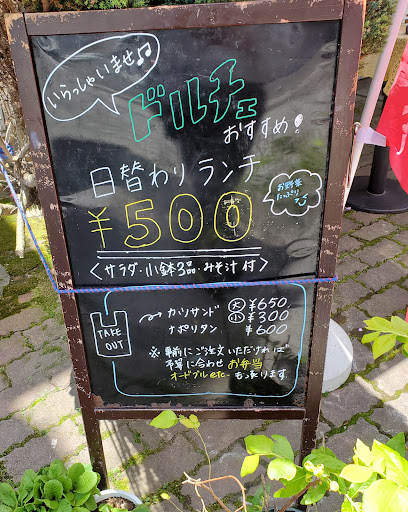 いらっしゃいませ♪
ドルチェ
おすすめ!
日替わりランチ
¥500
お野菜
たっぷり
<サラダ・小鉢3品・みそ汁付>
TAKE
OUT
カツサンド ㊛¥650
㊙¥300
ナポリタン ¥600
※事前にご注文いただければ
予算に合わせ お弁当
オードブル etc… も